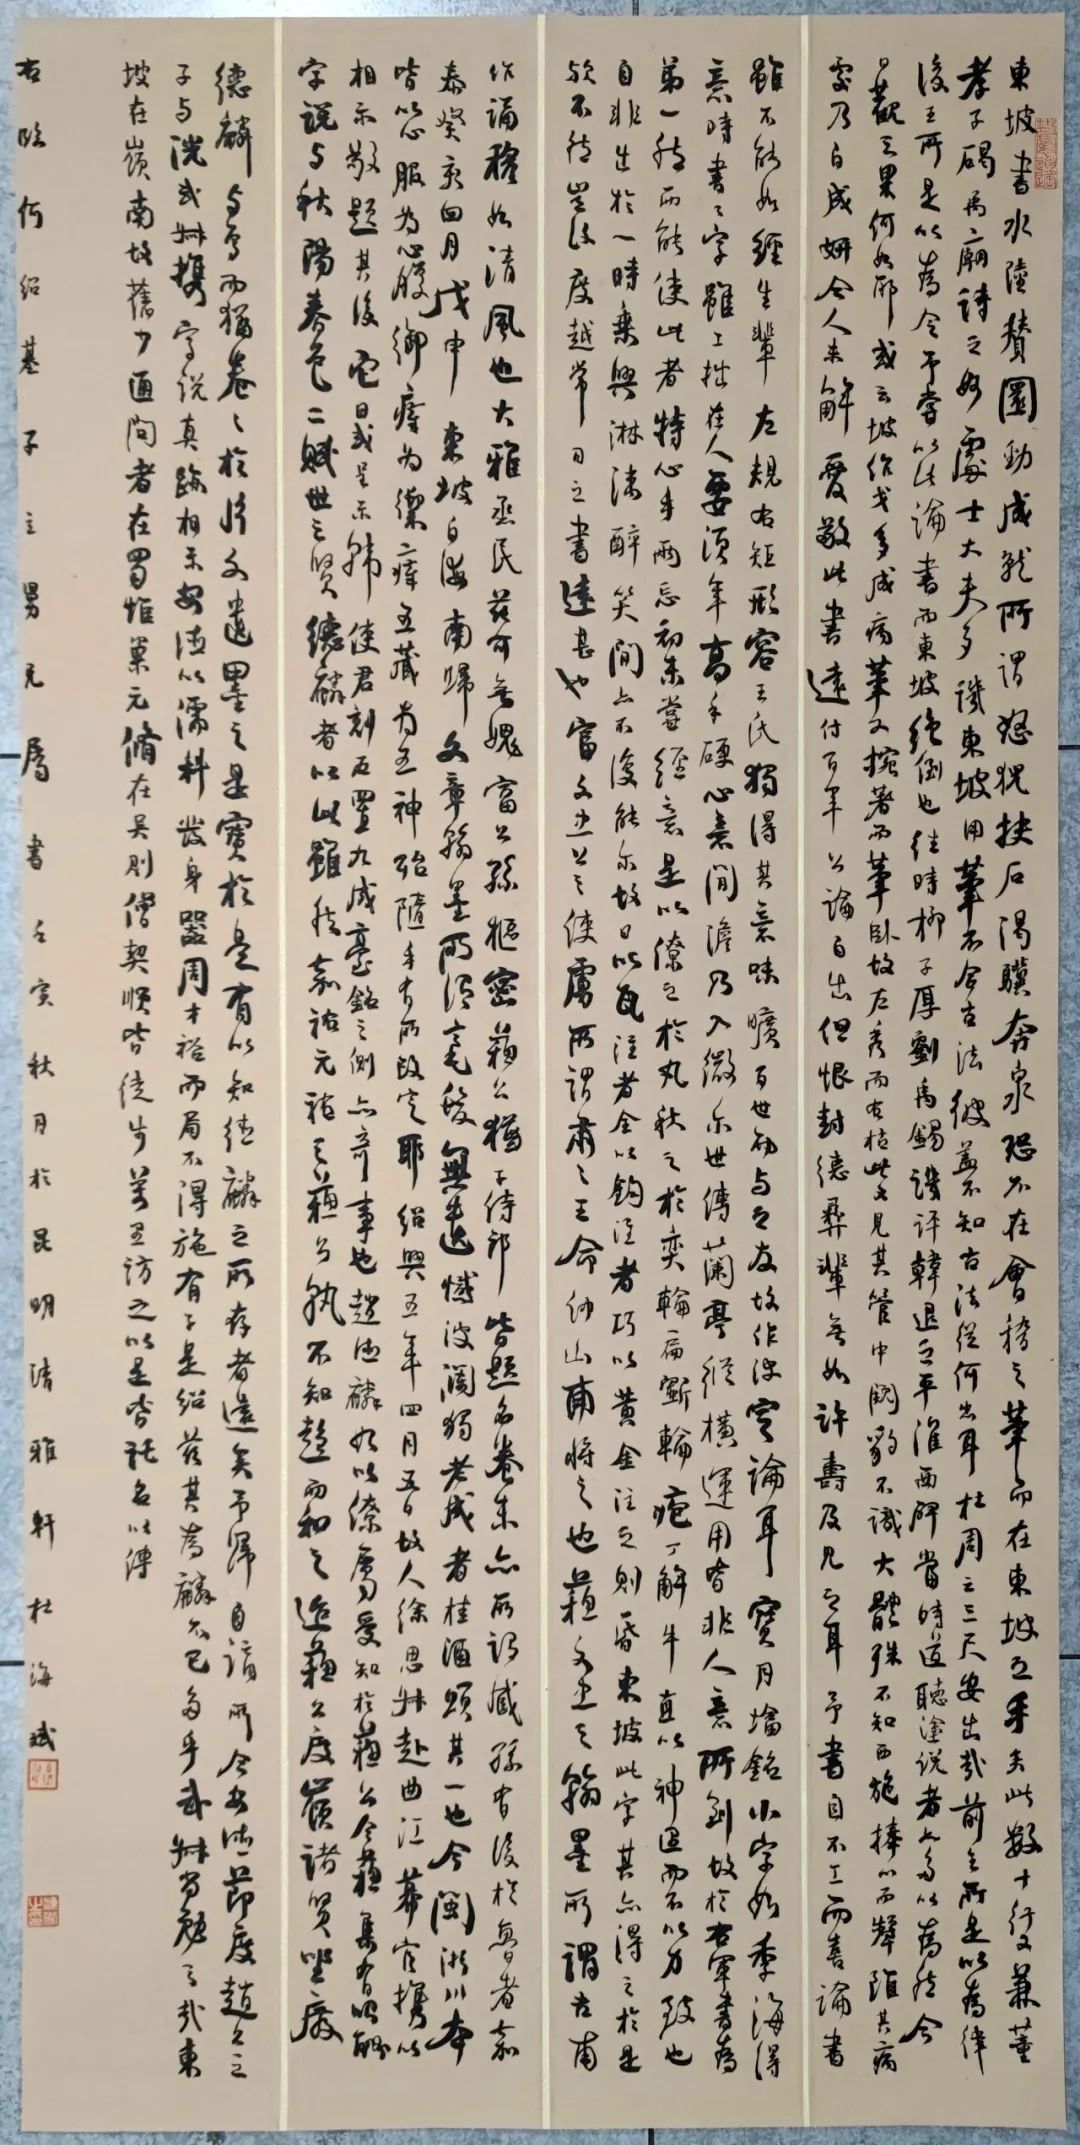 東坡書水陸贊圜勁成就所謂怒猊抉石渴驥奔泉恐不在會稽之筆而在東坡之手矣此數十行又兼董
孝子碣禹廟詩之妙處士大夫多譏東坡用筆不合古法彼蓋不知古法從何出耳杜周云三尺安出哉前主所是以為律
後主所是以為令予嘗以此論書而東坡絕倒也往時柳子厚劉禹錫譏評韓退之平淮西碑當時道聽塗說者亦多以為然今
日觀之果何如邪或云坡作戈多成病筆又腕著而筆臥故左秀而右枯此又見其管中闚豹不識大體殊不知西施捧心而顰雖其病
處乃自成妍今人未解愛敬此書遠付百年公論自出但恨封德彝輩無如許壽及見之耳予書自不工而喜論書
雖不能如經生輩左規右矩形容王氏獨得其意味曠百世而與之友故作決定論耳寶月塔銘小字如季海得
意時書書字雖工拙在人要須年高手硬心意閒澹乃入微爾世傳蘭亭縱橫運用皆非人意所到故於右軍書為
第一然而能使此者特心手兩忘初未嘗經意是以僚之於丸秋之於奕輪扁斲輪庖丁解牛直以神遇而不以力致也
自非出於一時乘興淋漓醉笑間亦不復能爾故曰以瓦注者全以鈎注者巧以黃金注之則昏東坡此字其亦得之於是
歟不然豈復度越常日之書遠甚也富文忠公之使虜所謂肅肅王命仲山甫將之也蘇文忠之翰墨所謂吉甫
作誦穆如清風也大雅烝民茲可無媿富公孫樞密蘇公猶子侍郎皆題名卷末亦所謂臧孫有後於魯者嘉
泰癸亥四月戊申東坡自海南歸文章翰墨所謂毫髮無遺憾波瀾獨老成者桂酒頌其一也今閩淅川本
皆以心服為心腹御瘴為禦瘴五藏為五神殆隨手有所改定耶紹興五年四月五日故人徐思叔赴曲江幕官携以
相示敬題其後它日或呈示韓使君刻石置九成臺銘之側亦奇事也趙德麟始以僚屬受知於蘇公今蘇集有所酬
字說与秋陽春色二賦世之賢德麟者以此雖然嘉祐元祐之蘇公孰不知趨而和之迨蘇公度嶺諸賢坐廢
德麟与焉而猶卷卷於片文遺墨之是寶於是有以知德麟之所存者遠矣予歸自請所今安德節度趙公之
子与洸或叔携字說真跡相示安德以濡科發身器周才裕而局不得施有子是紹茲其為麟不已多乎或叔尚勉之哉東
坡在嶺南故舊少通問者在蜀惟巢元脩在吳則僧契順皆徒步萬里訪之以是皆託名以傳
右臨何紹基子立男兄屬書壬寅秋月於昆明清雅軒杜海斌